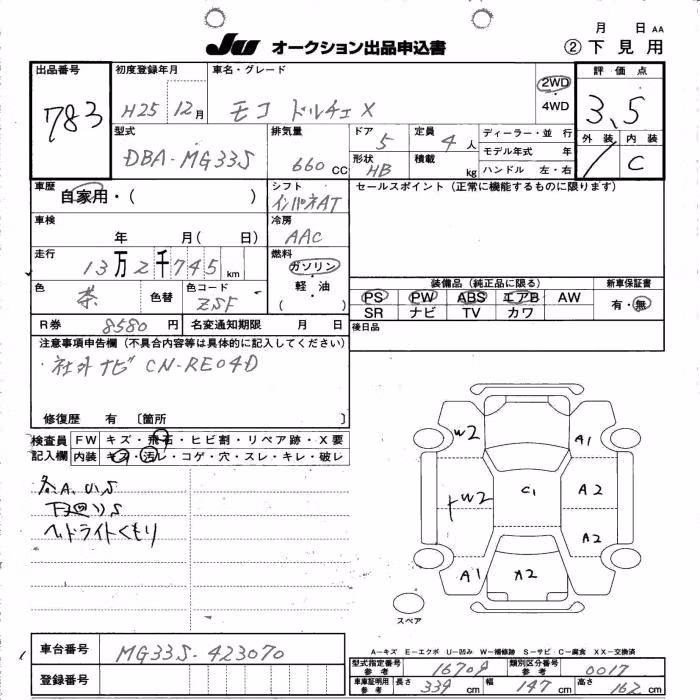 月 日 AA
JU オークション出品申込書
② 下見用
出品番号
783
初度登録年月
H25 12月
車名・グレード
モコ ドルチェX
2WD
4WD
評価点
3.5
外装 内装
C
型式
DBA-MG33S
排気量
660 CC
ドア
5
定員
4人
形状
HB
積載
kg
ディーラー・並 行
モデル年式 年
ハンドル 左・右
車歴
自家用・( )
シフト
インパネAT
セールスポイント (正常に機能するものに限ります)
車検
年 月( 日)
冷房
AAC
走行
13万2千745km
燃料
ガソリン
軽・油
( )
色
茶
色替
色コード
ZSF
装備品 (純正品に限る)
PS PW ABS エアB AW
SR ナビ TV カワ
新車保証書
有・無
R券 8580円
名変通知期限 月 日
後日品
注意事項申告欄 (不具合内容等は具体的に記入してください)
・社外ナビ CN-RE04D
修復歴 有 〔箇所 〕
検査員
記入欄
FW キズ・飛石・ヒビ割・リペア跡・X要
内装 キズ・汚レ・コゲ・穴・スレ・キレ・破レ
各A、U、S
下廻りS
ヘッドライトくもり
W2
A1
W2
C1
A2
A2
A1
A2
スペア
A－キズ E－エクボ U－凹み W－補修跡 S－サビ C－腐食 XX－交換済
車台番号
MG33S-423070
登録番号
型式指定番号
参考
16709
類別区分番号
参考
0017
車庫証明用
参考
長さ 339 cm
幅 147 cm
高さ 162 cm